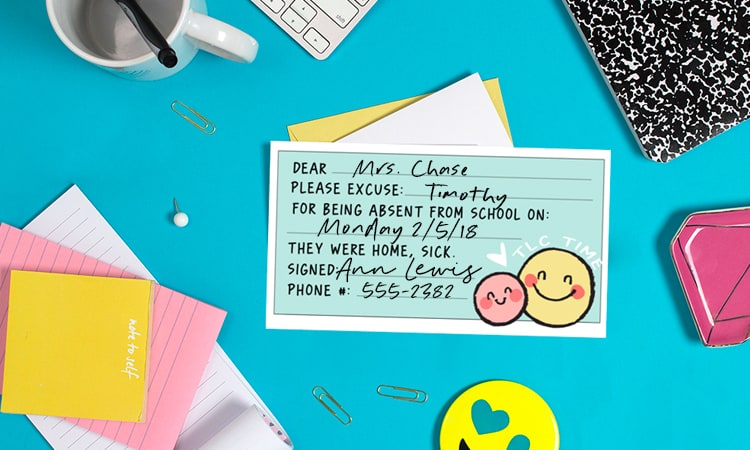 DEAR Mrs. Chase
PLEASE EXCUSE: Timothy
FOR BEING ABSENT FROM SCHOOL ON:
Monday 2/5/18
THEY WERE HOME, SICK.
SIGNED: Ann Lewis
PHONE #: 555-2382
TLC TIME
note to self